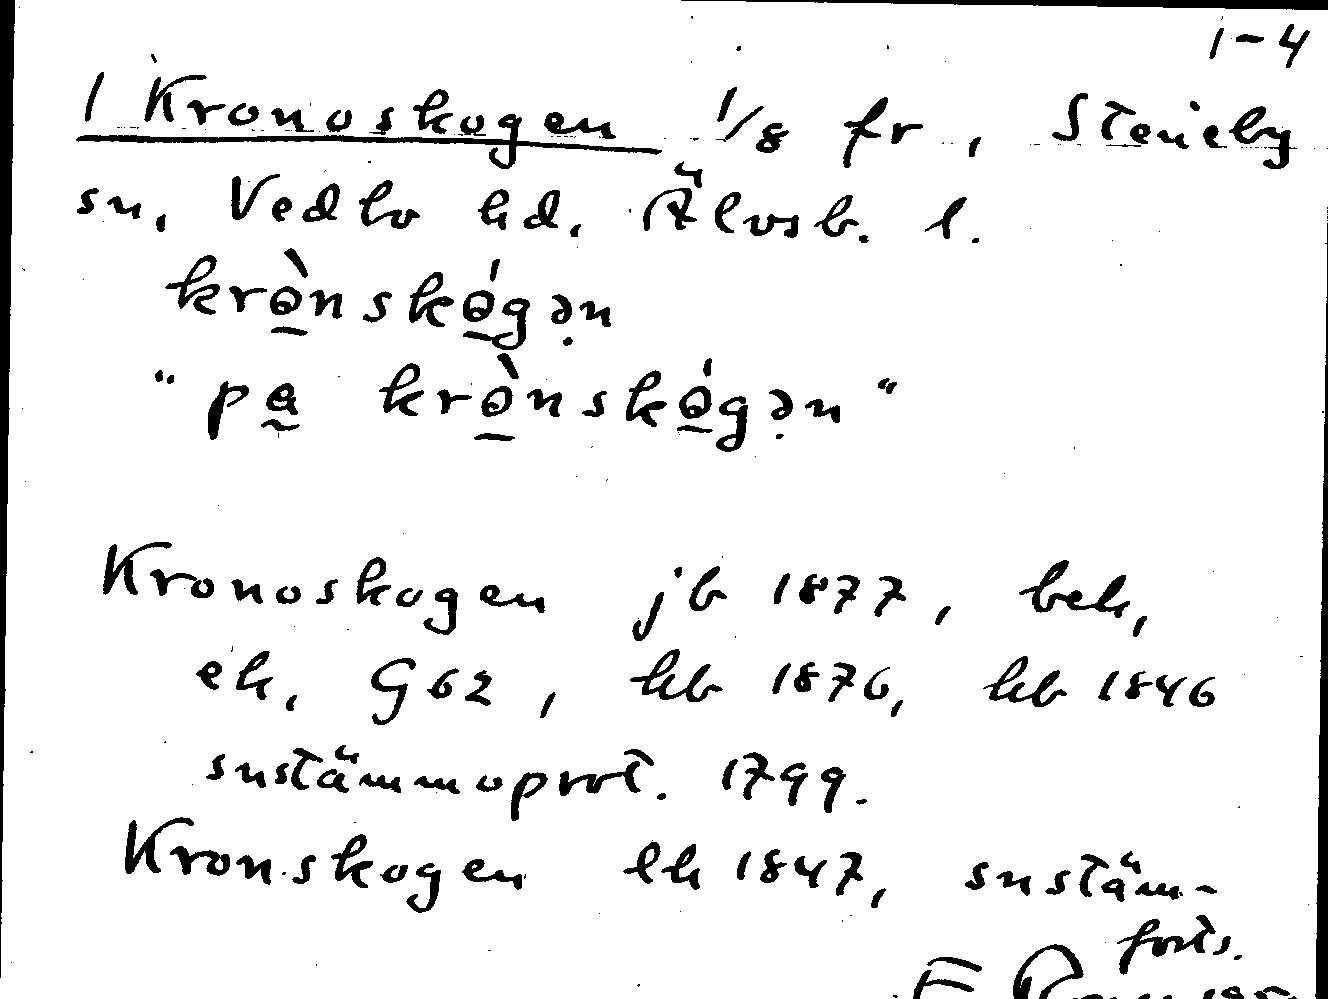 1-4
1 Kronoskogen 1/8 fr, Steneby
sn, Vedbo hd, Älvsb. l.
krɵ̠̀nskɵ̠́gə̣n
"pa̰ krɵ̠̀nskɵ̠́gə̣n"
Kronoskogen jb 1877, bek,
ek, G62, hb 1876, hb 1846
snstämmoprot. 1799.
Kronskogen lh 1847, snstäm-
forts.